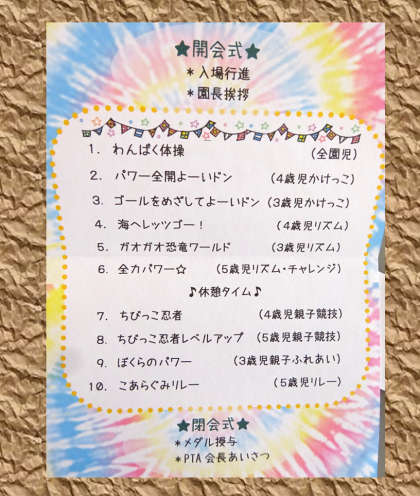 ★開会式★
＊入場行進
＊園長挨拶
1. わんぱく体操 (全園児)
2. パワー全開よーいドン (4歳児かけっこ)
3. ゴールをめざしてよーいドン (3歳児かけっこ)
4. 海へレッツゴー！ (4歳児リズム)
5. ガオガオ恐竜ワールド (3歳児リズム)
6. 全力パワー☆ (5歳児リズム・チャレンジ)
♪休憩タイム♪
7. ちびっこ忍者 (4歳児親子競技)
8. ちびっこ忍者レベルアップ (5歳児親子競技)
9. ぼくらのパワー (3歳児親子ふれあい)
10. こあらぐみリレー (5歳児リレー)
★閉会式★
＊メダル授与
＊PTA会長あいさつ